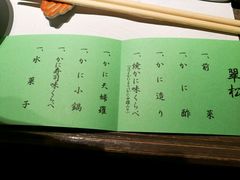 翠松
一、前菜
一、かに酢
一、かに造り
一、焼かに味くらべ
一、かに天婦羅
一、かに小鍋
一、かに寿司味くらべ
一、水菓子